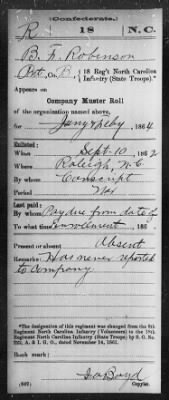 (Confederate.)
R 18 N.C.
B. F. Robinson
Pvt, Co. B, 18 Reg't North Carolina Infantry (State Troops).*
Appears on
Company Muster Roll
of the organization named above,
for Jany & Feby, 1864
Enlisted:
When Sept. 10, 1862
Where Raleigh, N.C.
By whom Conscript
Period War
Last paid:
By whom Pay due from date of
To what time enrolment, 186 .
Present or absent Absent
Remarks: Has never reported
to Company
*The designation of this regiment was changed from the 8th
Regiment North Carolina Infantry (Volunteers) to the 18th
Regiment North Carolina Infantry (State Troops) by S. O. No.
222, A. & I. G. O., dated November 14, 1861.
Book mark:
(642) Boyd
Copyist.